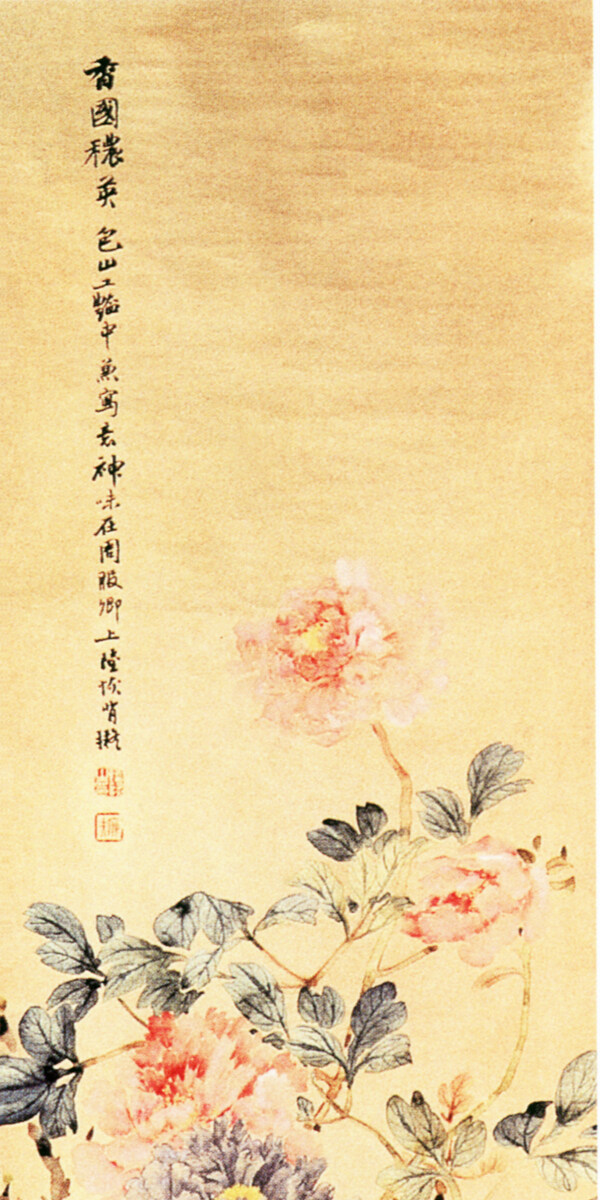 香國穠英 包山工緻中兼寫意神味在周服卿上陸恢背擬